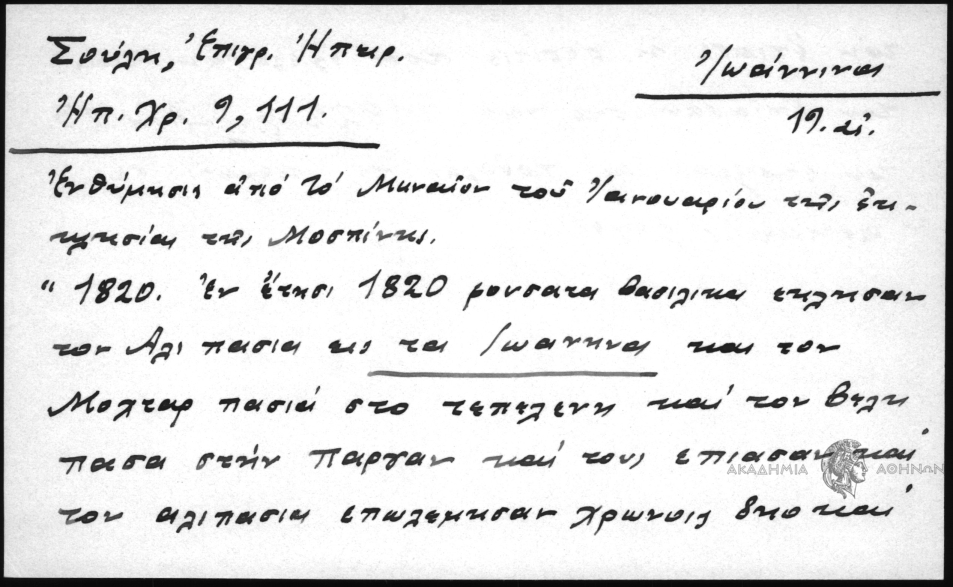 Σούλη, Ἐπιγρ. Ἠπειρ.
Ἰωάννινα
Ἠπ. Χρ. 9, 111.
19. αἰ.
Ἐνθύμησις ἀπό τό Μηναῖον τοῦ Ἰανουαρίου τῆς ἐκ-
κλησίας τῆς Μοσπίνης.
" 1820. Ἐν ἔτησι 1820 μουσατα βασιλικα εκλησαν
τον Αλι πασια εις τα Ιωαννηνα και τον
Μολταρ πασιά στο τεπελενη καί τον βελη
πασα στήν Παργαν καί τους επιασαν καί
τον αλιπασια επωλεμησαν χρωνοις δηο καί
ΑΚΑΔΗΜΙΑ ΑΘΗΝΩΝ